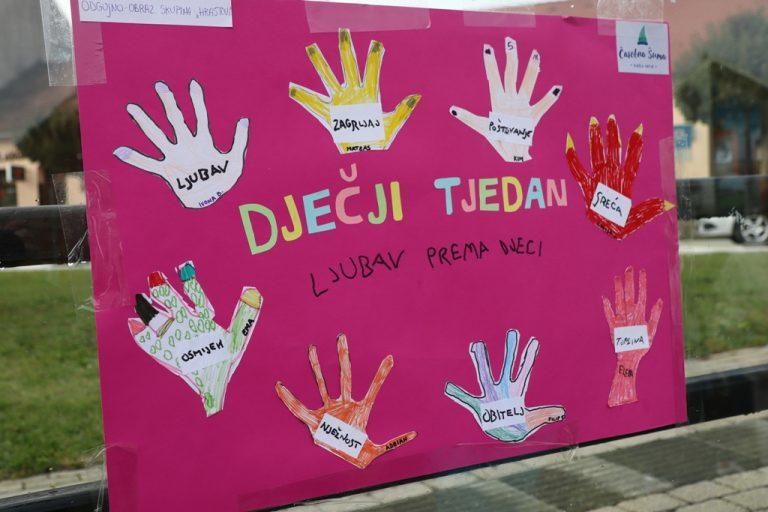 ODGOJNO-OBRAZ. SKUPINA „HRASTIĆI"
Čarobna Šuma
LJUBAV
IVONA B.
ZAGRLJAJ
MATEAS
5
POŠTOVANJE
KIM
SREĆA
DJEČJI TJEDAN
LJUBAV PREMA DJECI
OSMIJEH
EMA
NJEŽNOST
ADRIAN
OBITELJ
TOPLINA
ELENA